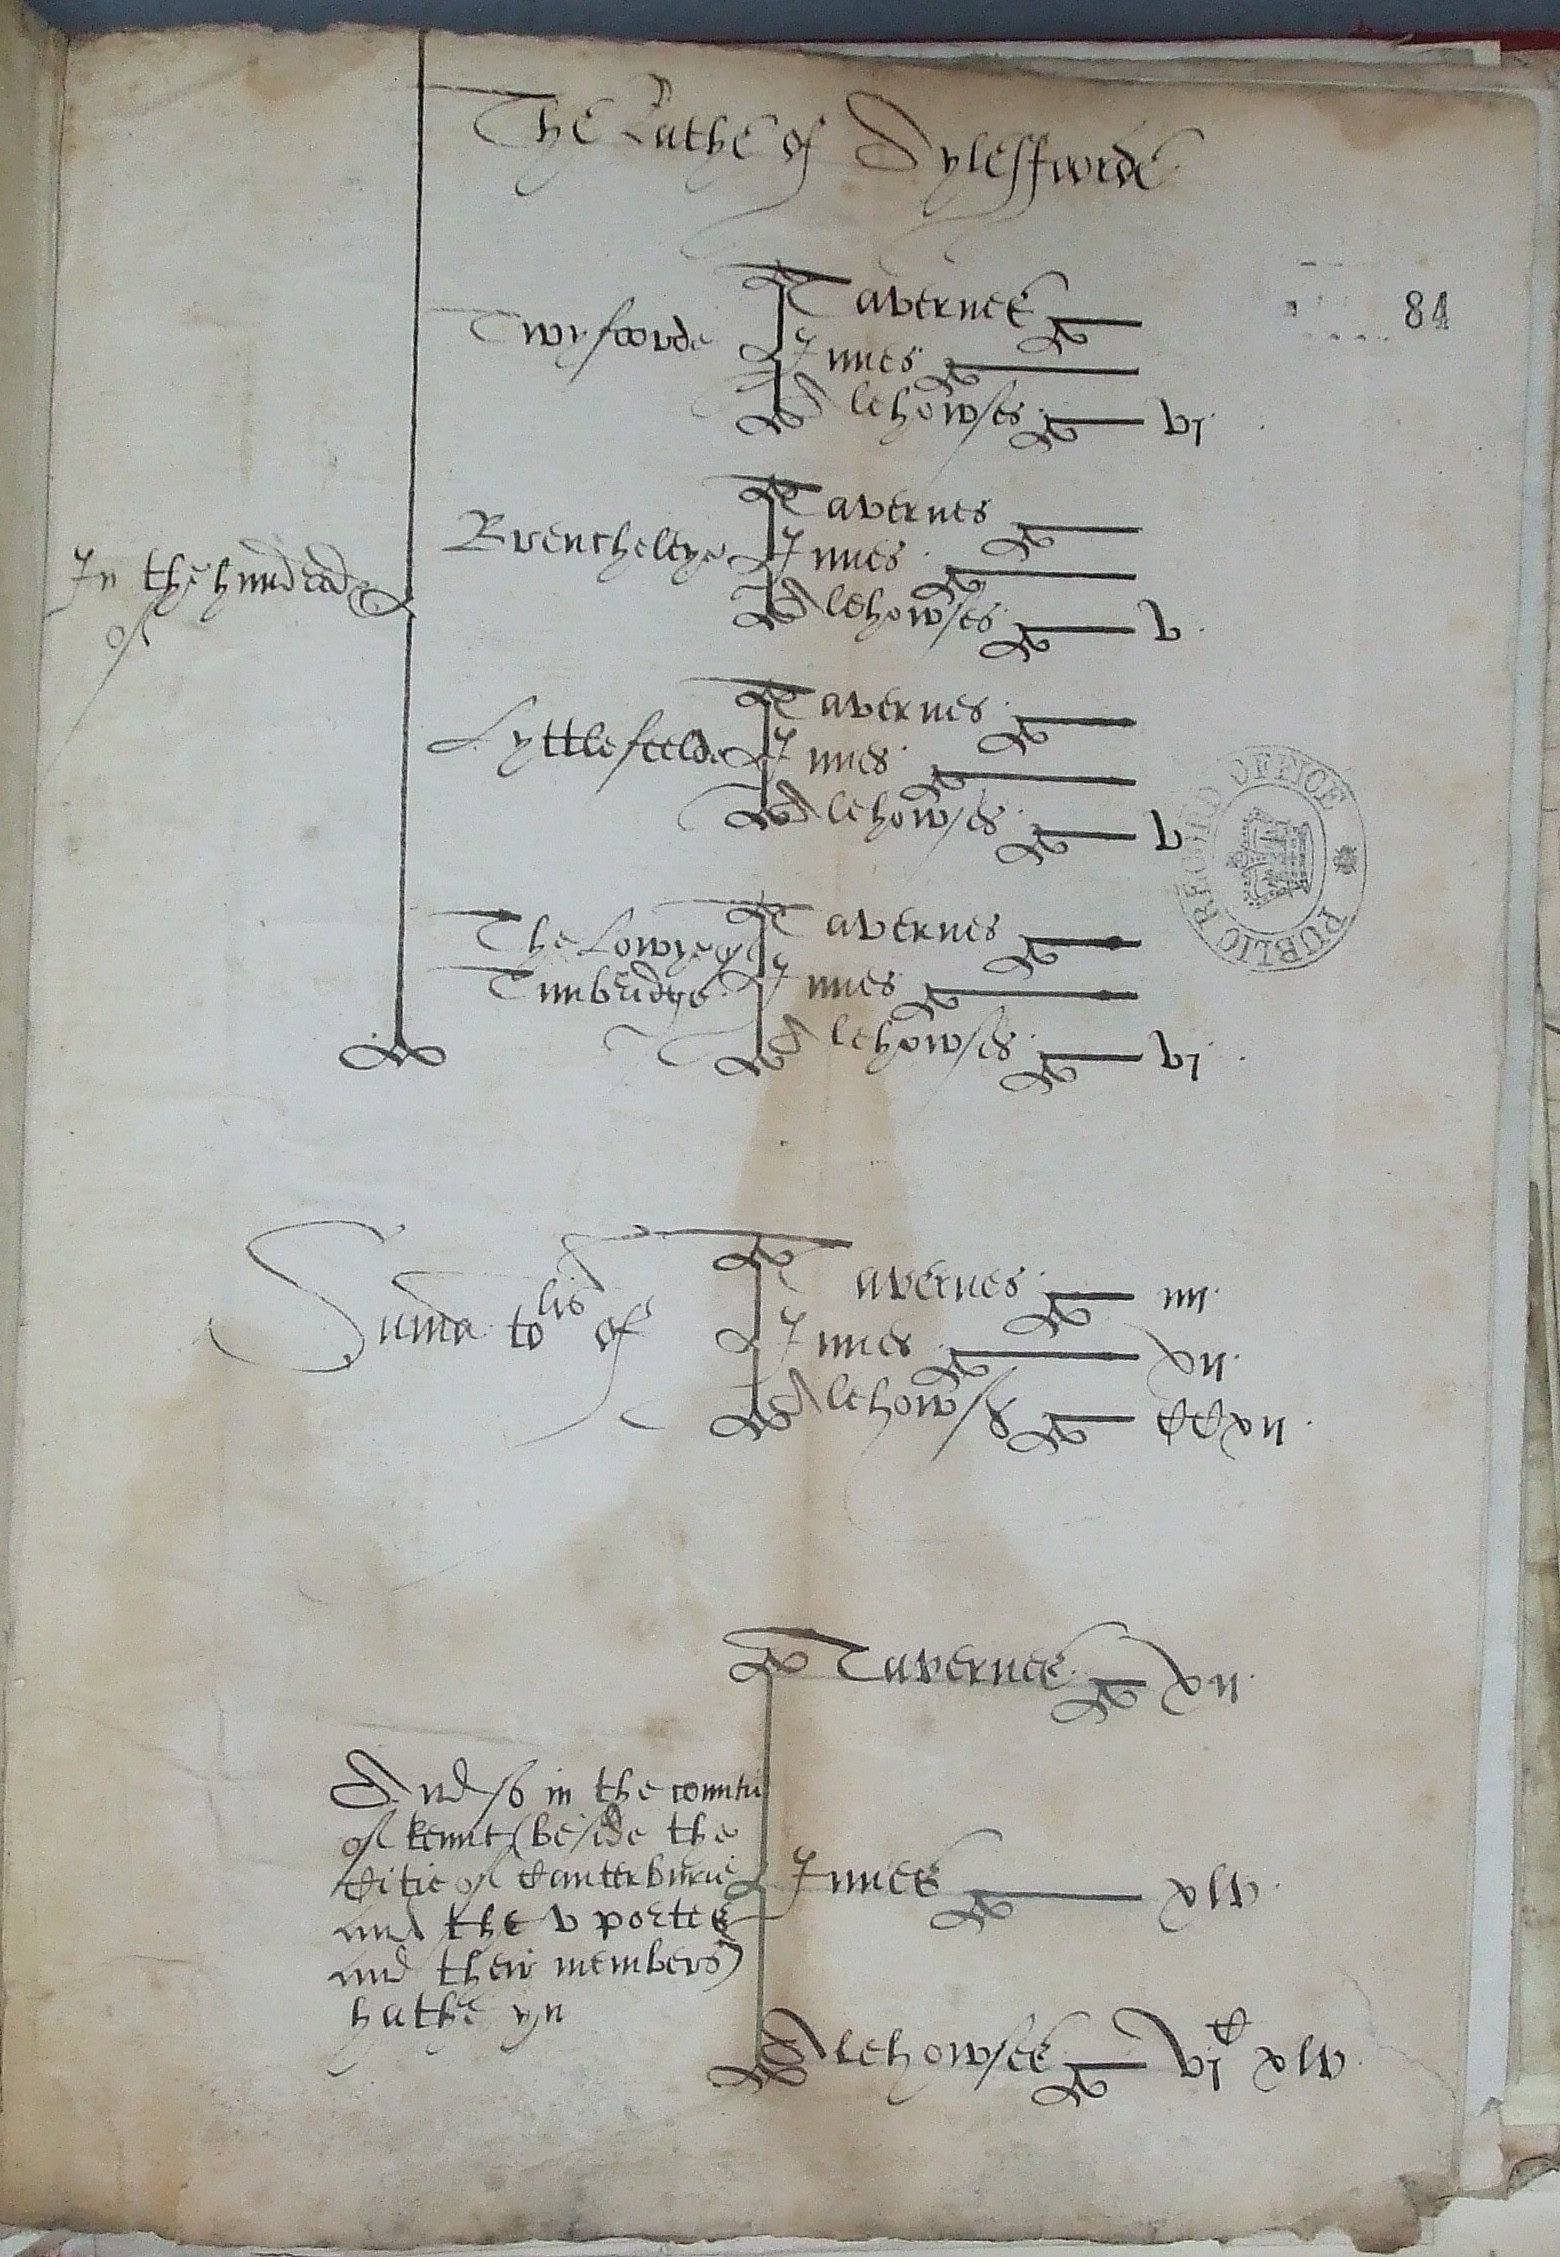 The Lathe of Aylesfforde
84
In the hundred
of
Twyfoorde
Tavernes
Innes
Alehowses vi
Brencheleye
Tavernes
Innes
Alehowses v
Lyttlefeelde
Tavernes
Innes
Alehowses v
The Lowye of
Tunbridge
Tavernes
Innes
Alehowses vi
PUBLIC RECORD OFFICE
Summa tolis of
Tavernes iiii
Innes xii
Alehowses CCxii
And so in the countie
of kennt (beside the
Citie of Canterburie
and the v portes
and their members)
hathe yn
Tavernes xii
Innes xlv
Alehowses vi C xlv